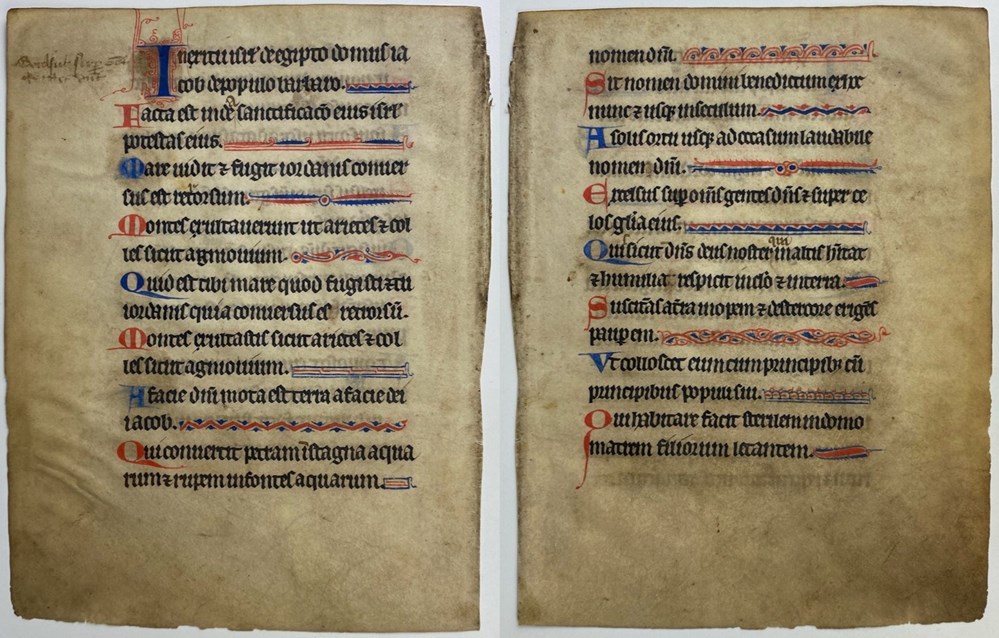 In exitu isrl' de egipto domus ia
cob de populo barbaro.
Facta est iudea sanctificacō eius isrl'
potestas eius.
Mare uidit ⁊ fugit iordanis conuer
sus est retrorsum.
Montes exultauerunt ut arietes ⁊ col
les sicut agni ouium.
Quid est tibi mare quod fugisti ⁊ tu
iordanis quia conuersus es retrorsū.
Montes exultastis sicut arietes ⁊ col
les sicut agni ouium.
A facie dn̄i mota est terra a facie dei
iacob.
Qui conuertit petram ī stagna aqua
rum ⁊ rupem in fontes aquarum.
nomen dn̄i.
Sit nomen domini benedictum ex hoc
nunc ⁊ usq; in seculum.
A solis ortu usq; ad occasum laudabile
nomen dn̄i.
Excelsus sup om̄s gentes dn̄s ⁊ super ce
los gl'ia eius.
Qui sicut dn̄s deus noster qui in altis h̄itat
⁊ humilia respicit in celo ⁊ in terra.
Suscitās a t̄ra inopem ⁊ de stercore erigēs
paup̄em.
Vt collocet eum cum principib; cū
principibus populi sui.
Qui habitare facit sterilem in domo
matrem filiorum letantem.